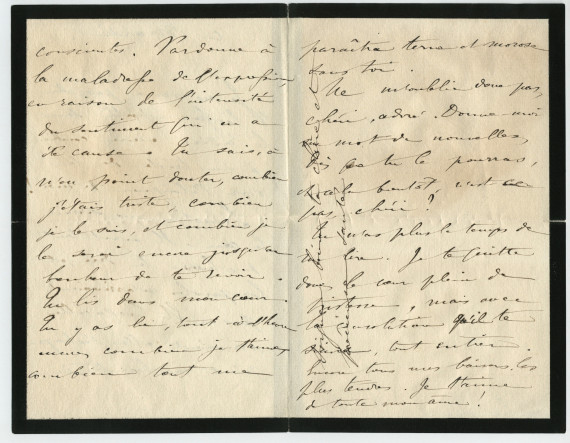 conscientes. Pardonne à
la maladresse de l'expression,
en raison de l'intensité
du sentiment qui en a
été cause. Tu sais, à
n'en point douter, combien
j'étais triste, combien
je le suis, et combien je
le serai encore jusqu'au
bonheur de te revoir.
Tu lis dans mon cœur.
Tu y as lu, tout à l'heure
encore combien je t'aime,
combien tout me
paraîtra terne et morose
sans toi.
Ne m'oublie donc pas,
chéri, adoré. Donne-moi
un mot de nouvelles,
dès que tu le pourras,
bientôt, n'est-ce
pas, chéri?
Tu n'as plus le temps de
lire. Je te quitte
donc le cœur plein de
tristesse, mais avec
la consolation qu'il te
tout entier.
tous mes baisers les
plus tendres. Je t'aime
de toute mon âme!